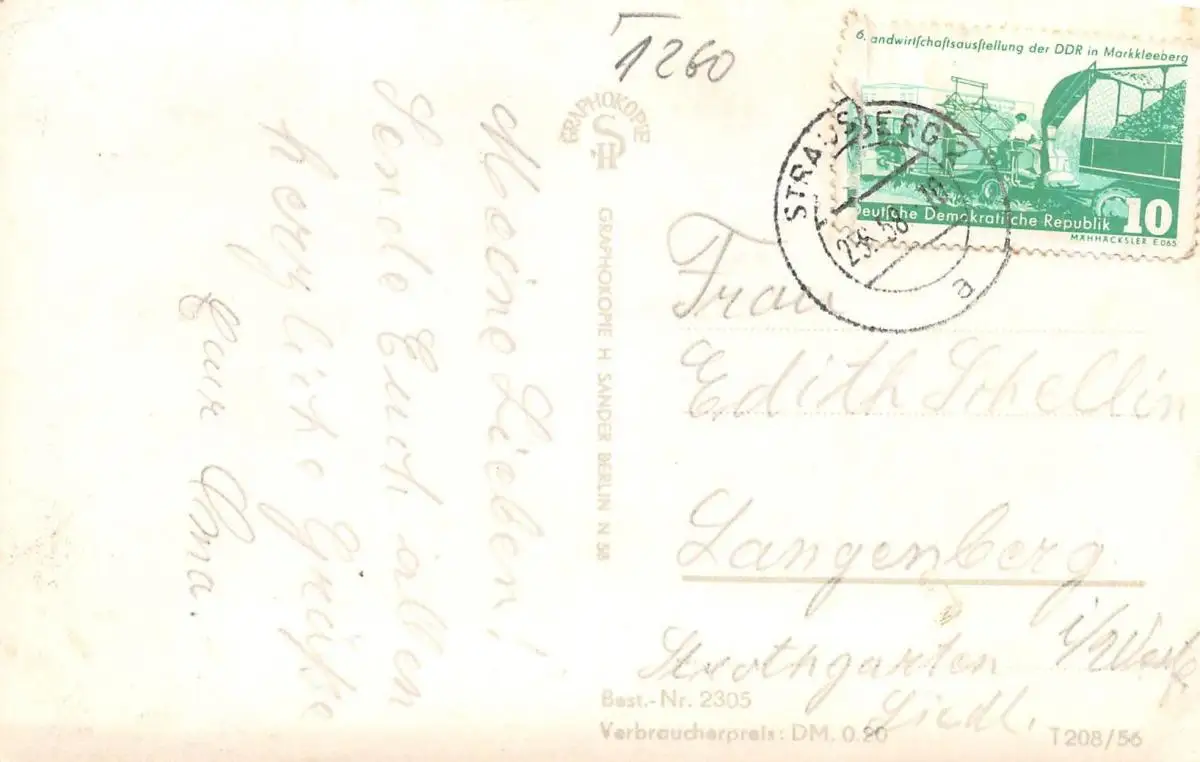 1260
6. Landwirtschaftsausstellung der DDR in Markkleeberg
Deutsche Demokratische Republik 10
MÄHHÄCKSLER E.065
STRAUSBERG 2
58
a
GRAPHOKOPIE
SH
GRAPHOKOPIE H. SANDER BERLIN N 58
Meine Lieben!
Sende Euch allen
herzlich. Grüße
Eur Oma.
Frau
Edith Schellin
Langenberg
i/Westf
Strothgarten
Siedl.
Best.-Nr. 2305
Verbraucherpreis: DM. 0.20
T 208/56